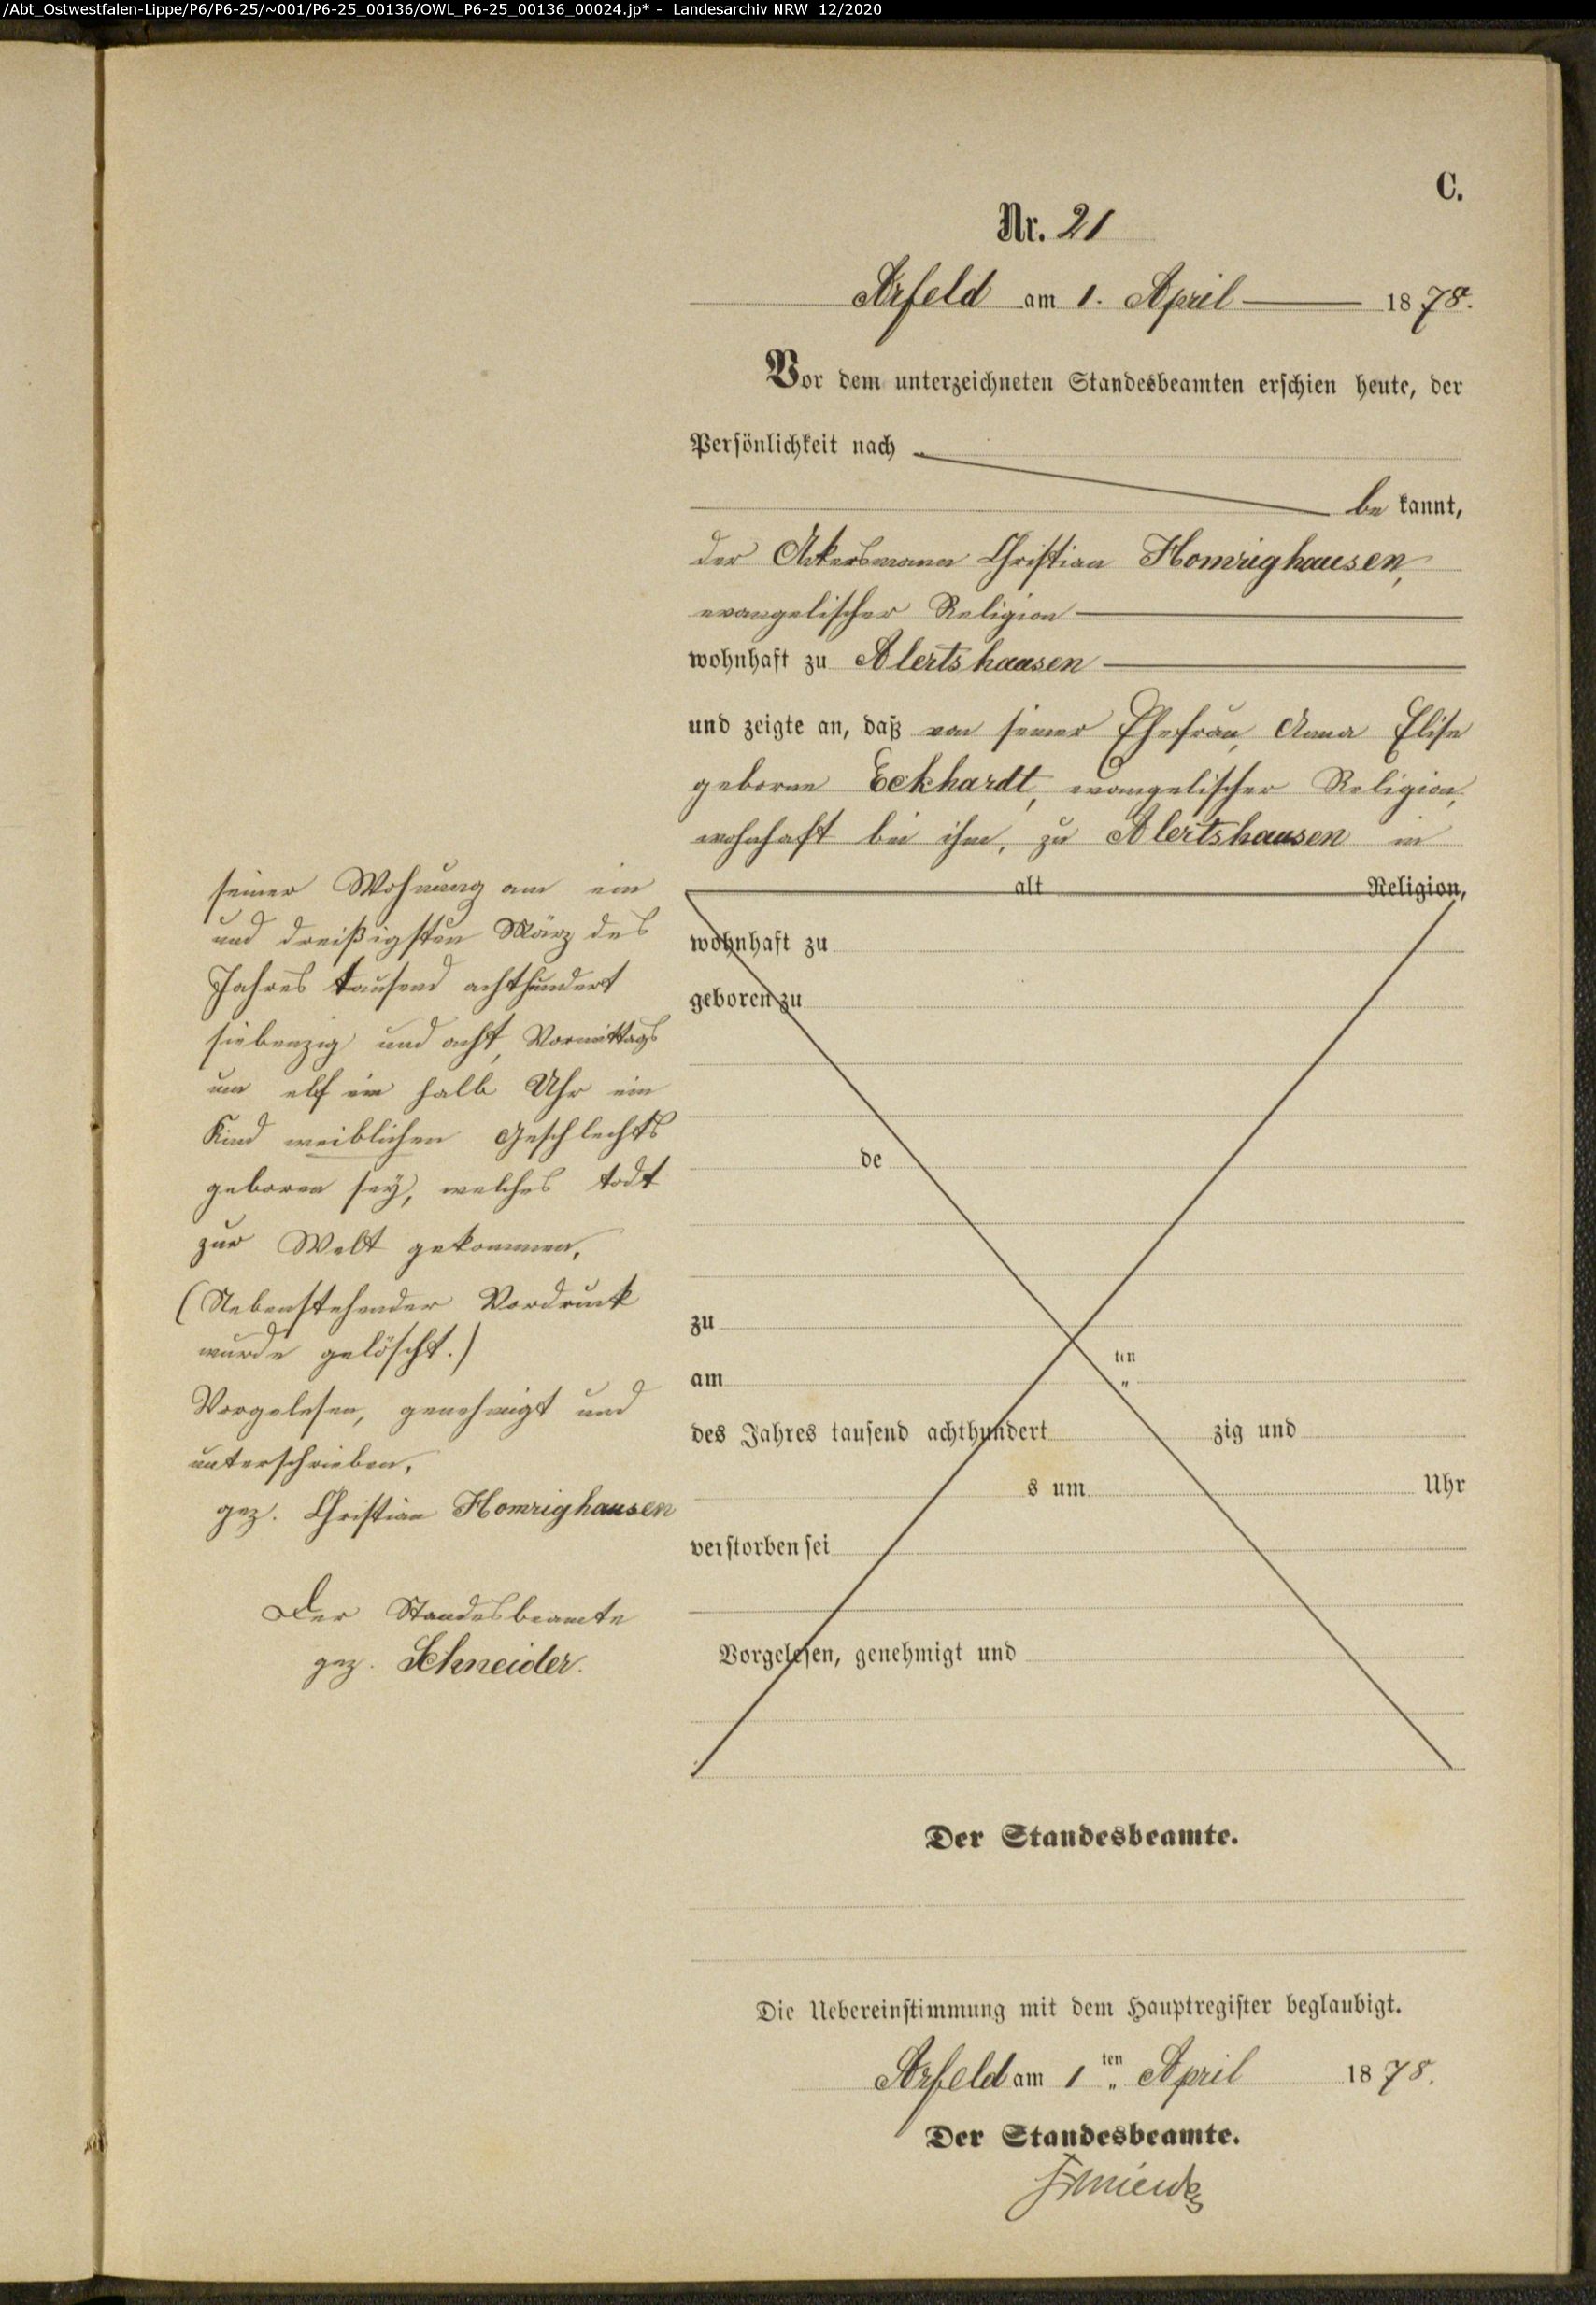 /Abt_Ostwestfalen-Lippe/P6/P6-25/~001/P6-25_00136/OWL_P6-25_00136_00024.jp* - Landesarchiv NRW 12/2020
C.
Nr. 21
Arfeld am 1. April 1878.
Vor dem unterzeichneten Standesbeamten erschien heute, der
Persönlichkeit nach
be kannt,
der Ackersmann Christian Homrighausen,
evangelischer Religion
wohnhaft zu Alertshausen
und zeigte an, daß von seiner Ehefrau, Anna Elise
geborne Eckhardt, evangelischer Religion,
wohnhaft bei ihm, zu Alertshausen in
seiner Wohnung am ein
und dreißigsten März des
Jahres tausend achthundert
siebenzig und acht, Vormittags
um elf ein halb Uhr ein
Kind weiblichen Geschlechts
geboren sey, welches todt
zur Welt gekommen,
(Nebenstehender Vordruck
wurde gelöscht.)
Vorgelesen, genehmigt und
unterschrieben,
gez. Christian Homrighausen
Der Standesbeamte
gez. Schneider.
alt Religion,
wohnhaft zu
geboren zu
de
zu
am ten
"
des Jahres tausend achthundert zig und
s um Uhr
verstorben sei
Vorgelesen, genehmigt und
Der Standesbeamte.
Die Uebereinstimmung mit dem Hauptregister beglaubigt.
Arfeld am 1 ten April 1878.
Der Standesbeamte.
Schneider